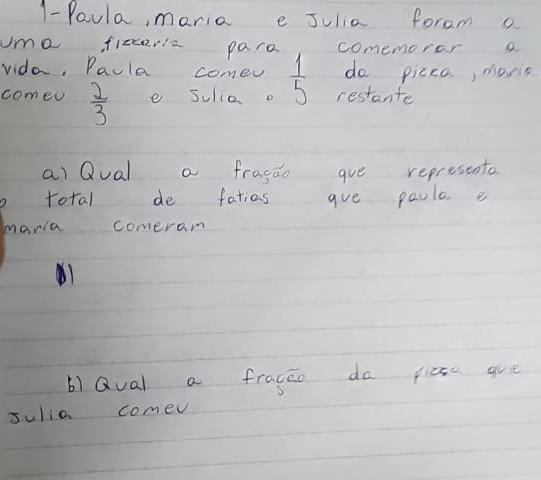 1-Paula, maria e Julia foram a
uma fizzaria para comemorar a
vida. Paula comeu 1/5 da pizza, maria
comeu 2/3 e Julia o restante
a) Qual a fração que representa
o total de fatias que paula e
maria comeram
b) Qual a fração da pizza que
Julia comeu